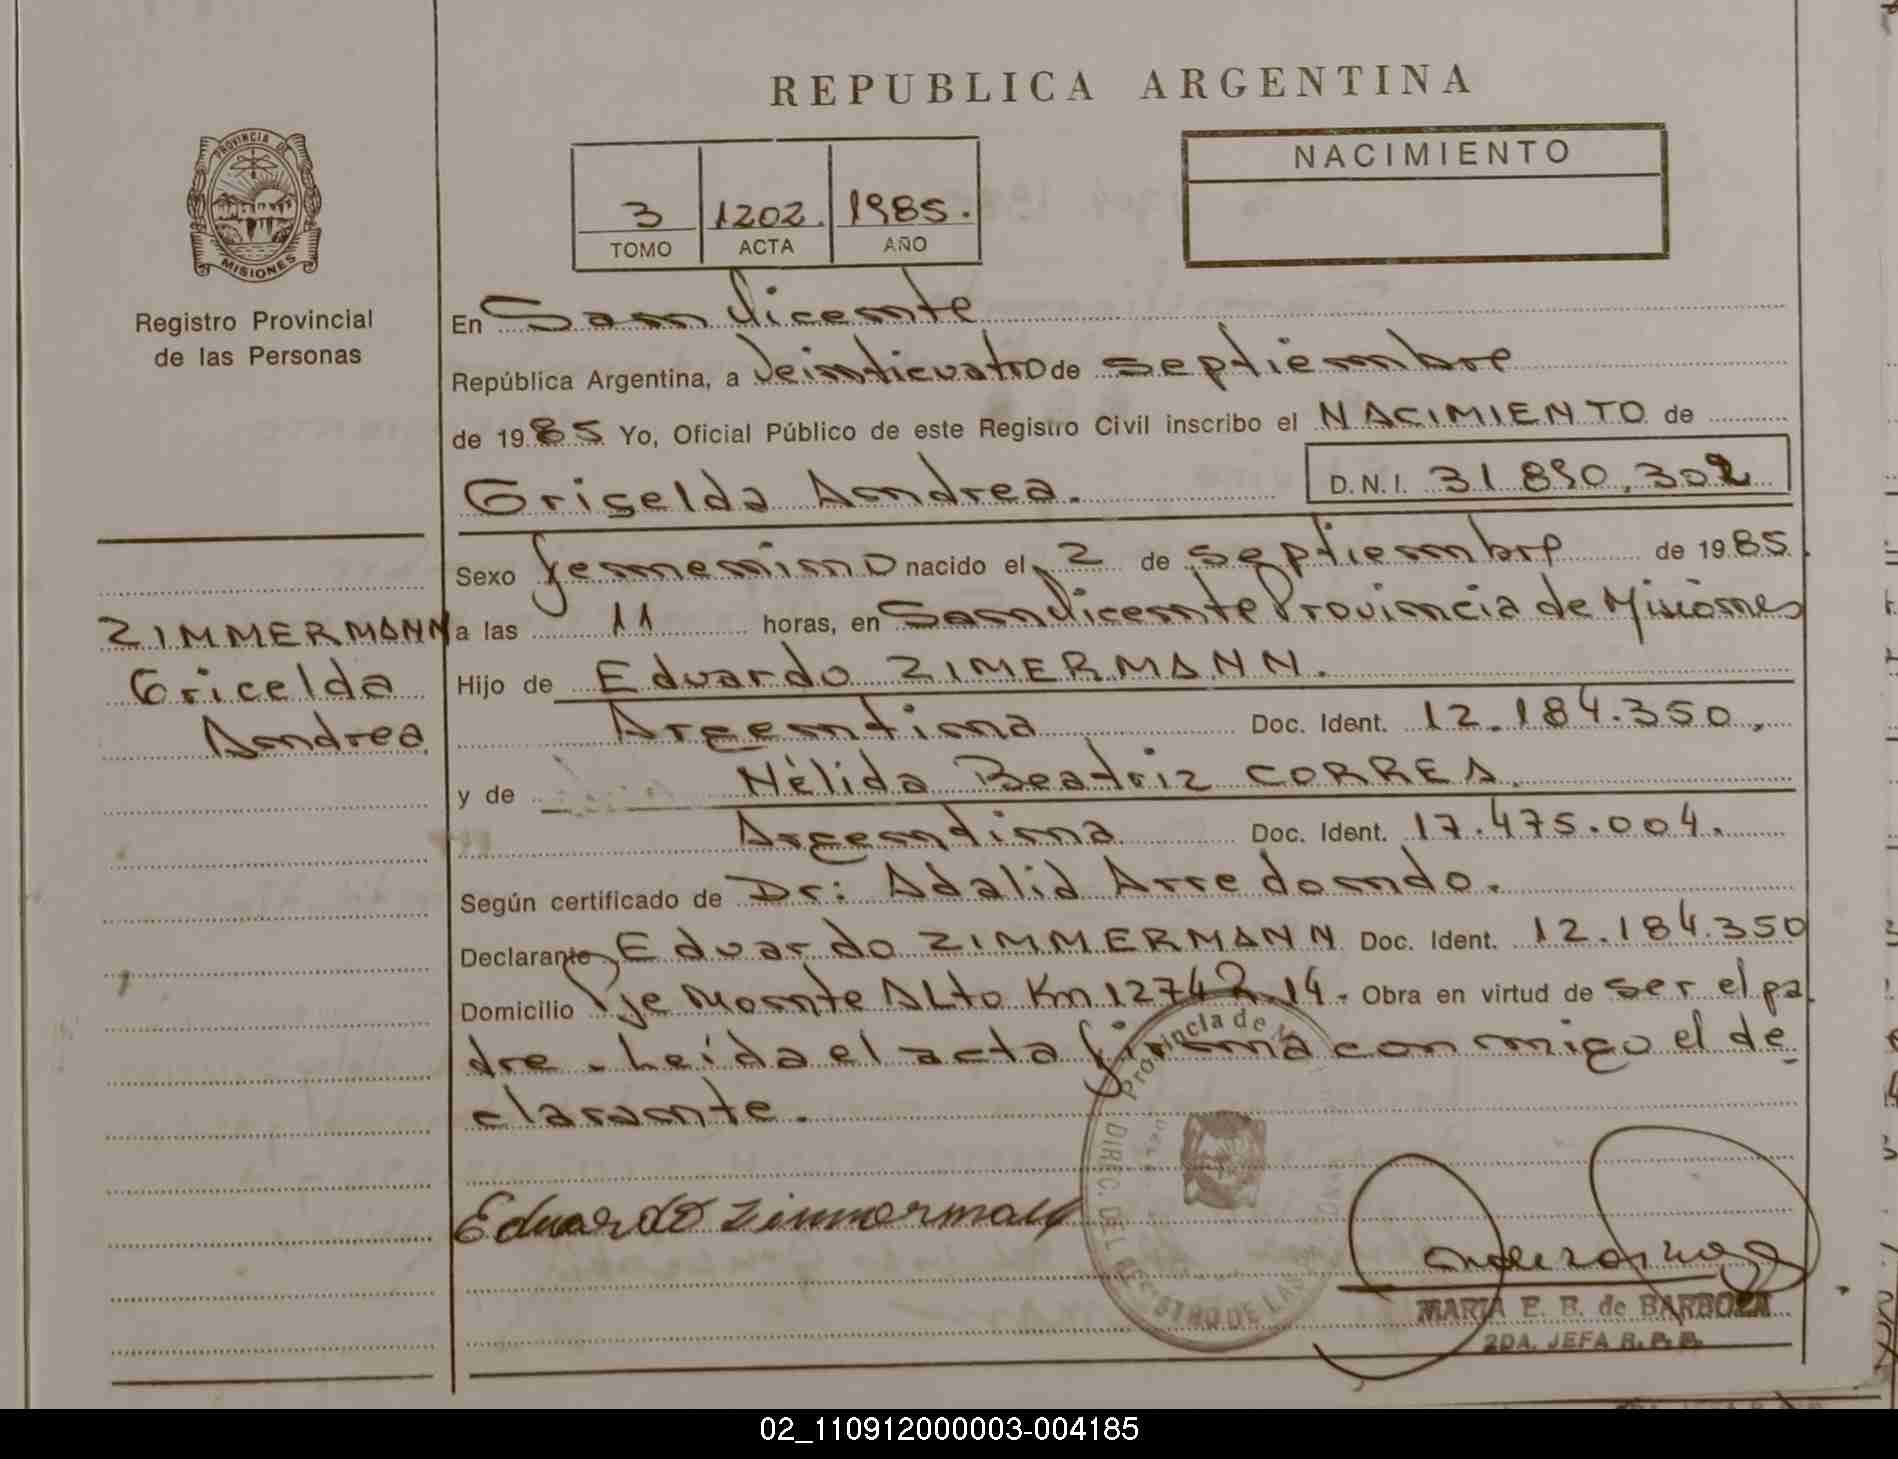 REPUBLICA ARGENTINA
PROVINCIA DE
MISIONES
Registro Provincial
de las Personas
3 1202. 1985.
TOMO ACTA AÑO
NACIMIENTO
En San Vicente
República Argentina, a Veinticuatro de septiembre
de 1985 Yo, Oficial Público de este Registro Civil inscribo el NACIMIENTO de
Griselda Andrea. D.N.I. 31.890.302
Sexo femenino nacido el 2 de septiembre de 1985
a las 11 horas, en San Vicente Provincia de Misiones
Hijo de Eduardo ZIMERMANN.
Argentina Doc. Ident. 12.184.350.
y de Nélida Beatriz CORREA.
Argentina Doc. Ident. 17.475.004.
Según certificado de Dr: Adalid Arredondo.
Declarante Eduardo ZIMMERMANN Doc. Ident. 12.184.350
Domicilio Pje Monte ALto Km 1274 R.14. Obra en virtud de ser el pa
dre. Leída el acta firma conmigo el de
clarante.
ZIMMERMANN
Gricelda
Andrea
Eduardo Zimmerman
Provincia de
DIREC. DEL REGISTRO DE LAS
MARIA E. B. de BARBOZA
2DA. JEFA R. P. P.
02_110912000003-004185